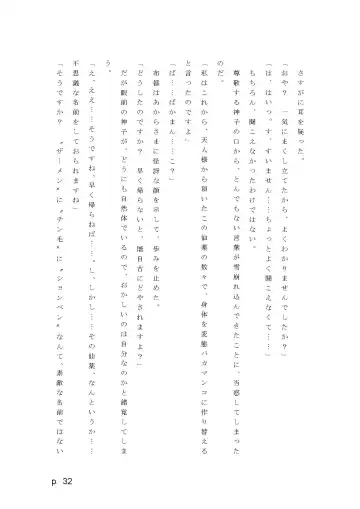 さすがに耳を疑った。
「おや？　一気にまくし立てたから、よくわかりませんでしたか？」
「は、はいっ。す、すいません……ちょっとよく聞こえなくて……」
もちろん、聞こえなかったわけではない。
尊敬する神子の口から、とんでもない言葉が雪崩れ込んできたことに、当惑してしまった
のだ。
「私はこれから、天人様から頂いたこの仙薬の数々で、身体を変態バカマンコに作り替える
と言ったのですよ」
「ば……ばかまん……こ？」
布都はあからさまに怪訝な顔を示して、歩みを止めた。
「どうしたのですか？　早く帰らないと、屠自古にどやされますよ？」
だが眼前の神子が、どうにも自然体でいるので、おかしいのは自分なのかと錯覚してしま
う。
「え、ええ……そうですね、早く帰らねば……。し、しかし……その仙薬、なんというか……
不思議な名前をしておられますね」
「そうですか？　〝ザーメン〟に〝チン毛〟に〝ションベン〟なんて、素敵な名前ではない
p. 32